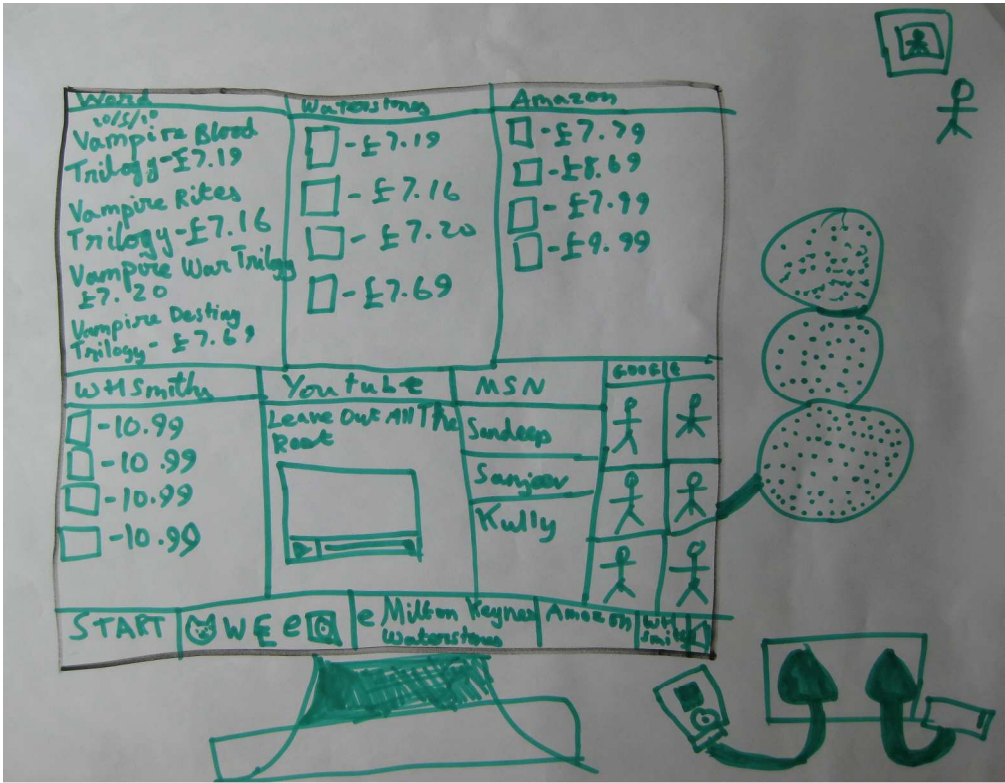 Word
10/5/10
Vampire Blood
Trilogy-£7.19
Vampire Rites
Trilogy-£7.16
Vampire War Trilogy
£7.20
Vampire Destiny
Trilogy- £7.69
Waterstones
-£7.19
-£7.16
-£7.20
-£7.69
Amazon
-£7.79
-£8.69
-£7.99
-£9.99
WHSmiths
-10.99
-10.99
-10.99
-10.99
Youtube
Leave Out All The
Rest
MSN
Sundeep
Sanjeev
Kully
GOOGLE
START
W E e
e Milton Keynes
Waterstones
Amazon
WH
Smiths